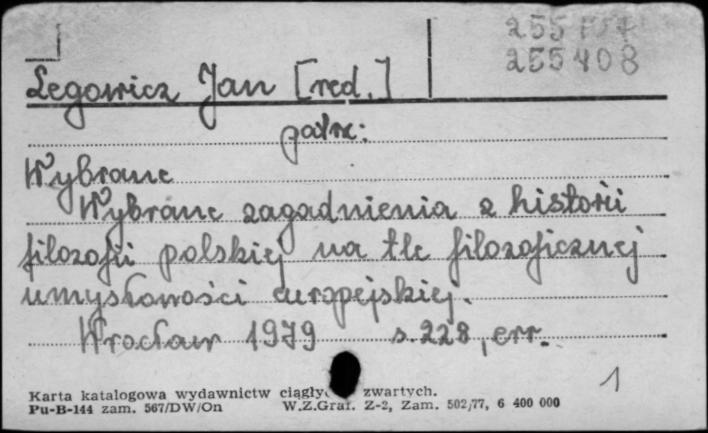 255
255408
Legowicz Jan [red.]
patrz:
Wybrane
Wybrane zagadnienia z historii
filozofii polskiej na tle filozoficznej
umysłowości europejskiej.
Wrocław 1979 s. 228, err.
1
Karta katalogowa wydawnictw zwartych.
Pu-B-144 zam. 567/DW/On W.Z.Graf. Z-2, Zam. 502/77, 6 400 000